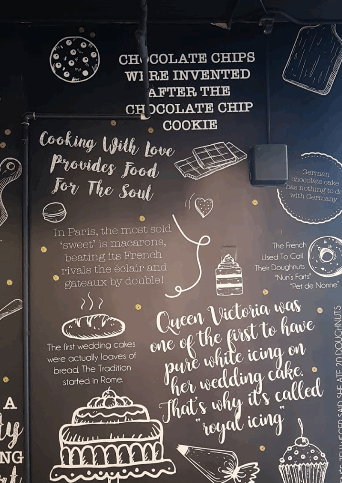 CHOCOLATE CHIPS
WERE INVENTED
AFTER THE
CHOCOLATE CHIP
COOKIE
Cooking With Love
Provides Food
For The Soul
German
chocolate cake
has nothing to do
with Germany
In Paris, the most sold
'sweet' is macarons,
beating its French
rivals the éclair and
gateaux by double!
The French
Used To Call
Their Doughnuts
"Nun's Farts"
"Pet de Nonne"
Queen Victoria was
one of the first to have
pure white icing on
her wedding cake.
That's why it's called
"royal icing"
The first wedding cakes
were actually loaves of
bread. The Tradition
started in Rome.
A
ty
NG
SAID HE ATE 20 DOUGHNUTS